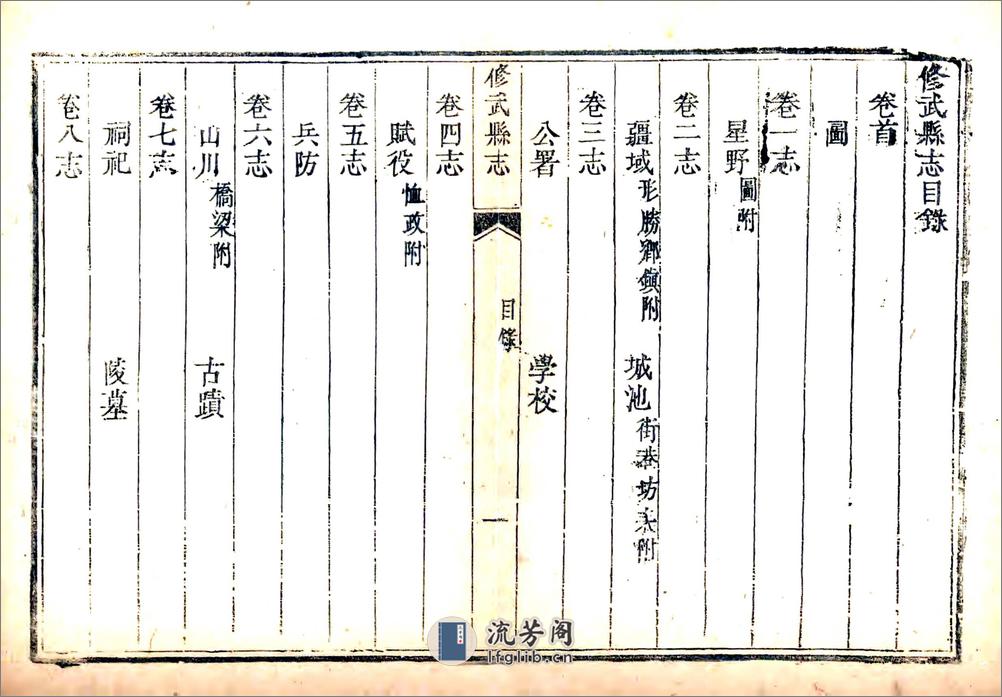 修武縣志目錄
卷首
圖
卷一志
星野圖附
卷二志
疆域形勝鄉鎮附 城池街巷坊表附
卷三志
公署 學校
修武縣志 目錄 一
卷四志
賦役恤政附
卷五志
兵防
卷六志
山川橋梁附 古蹟
卷七志
祠祀 陵墓
卷八志
流芳阁
lfglib.cn